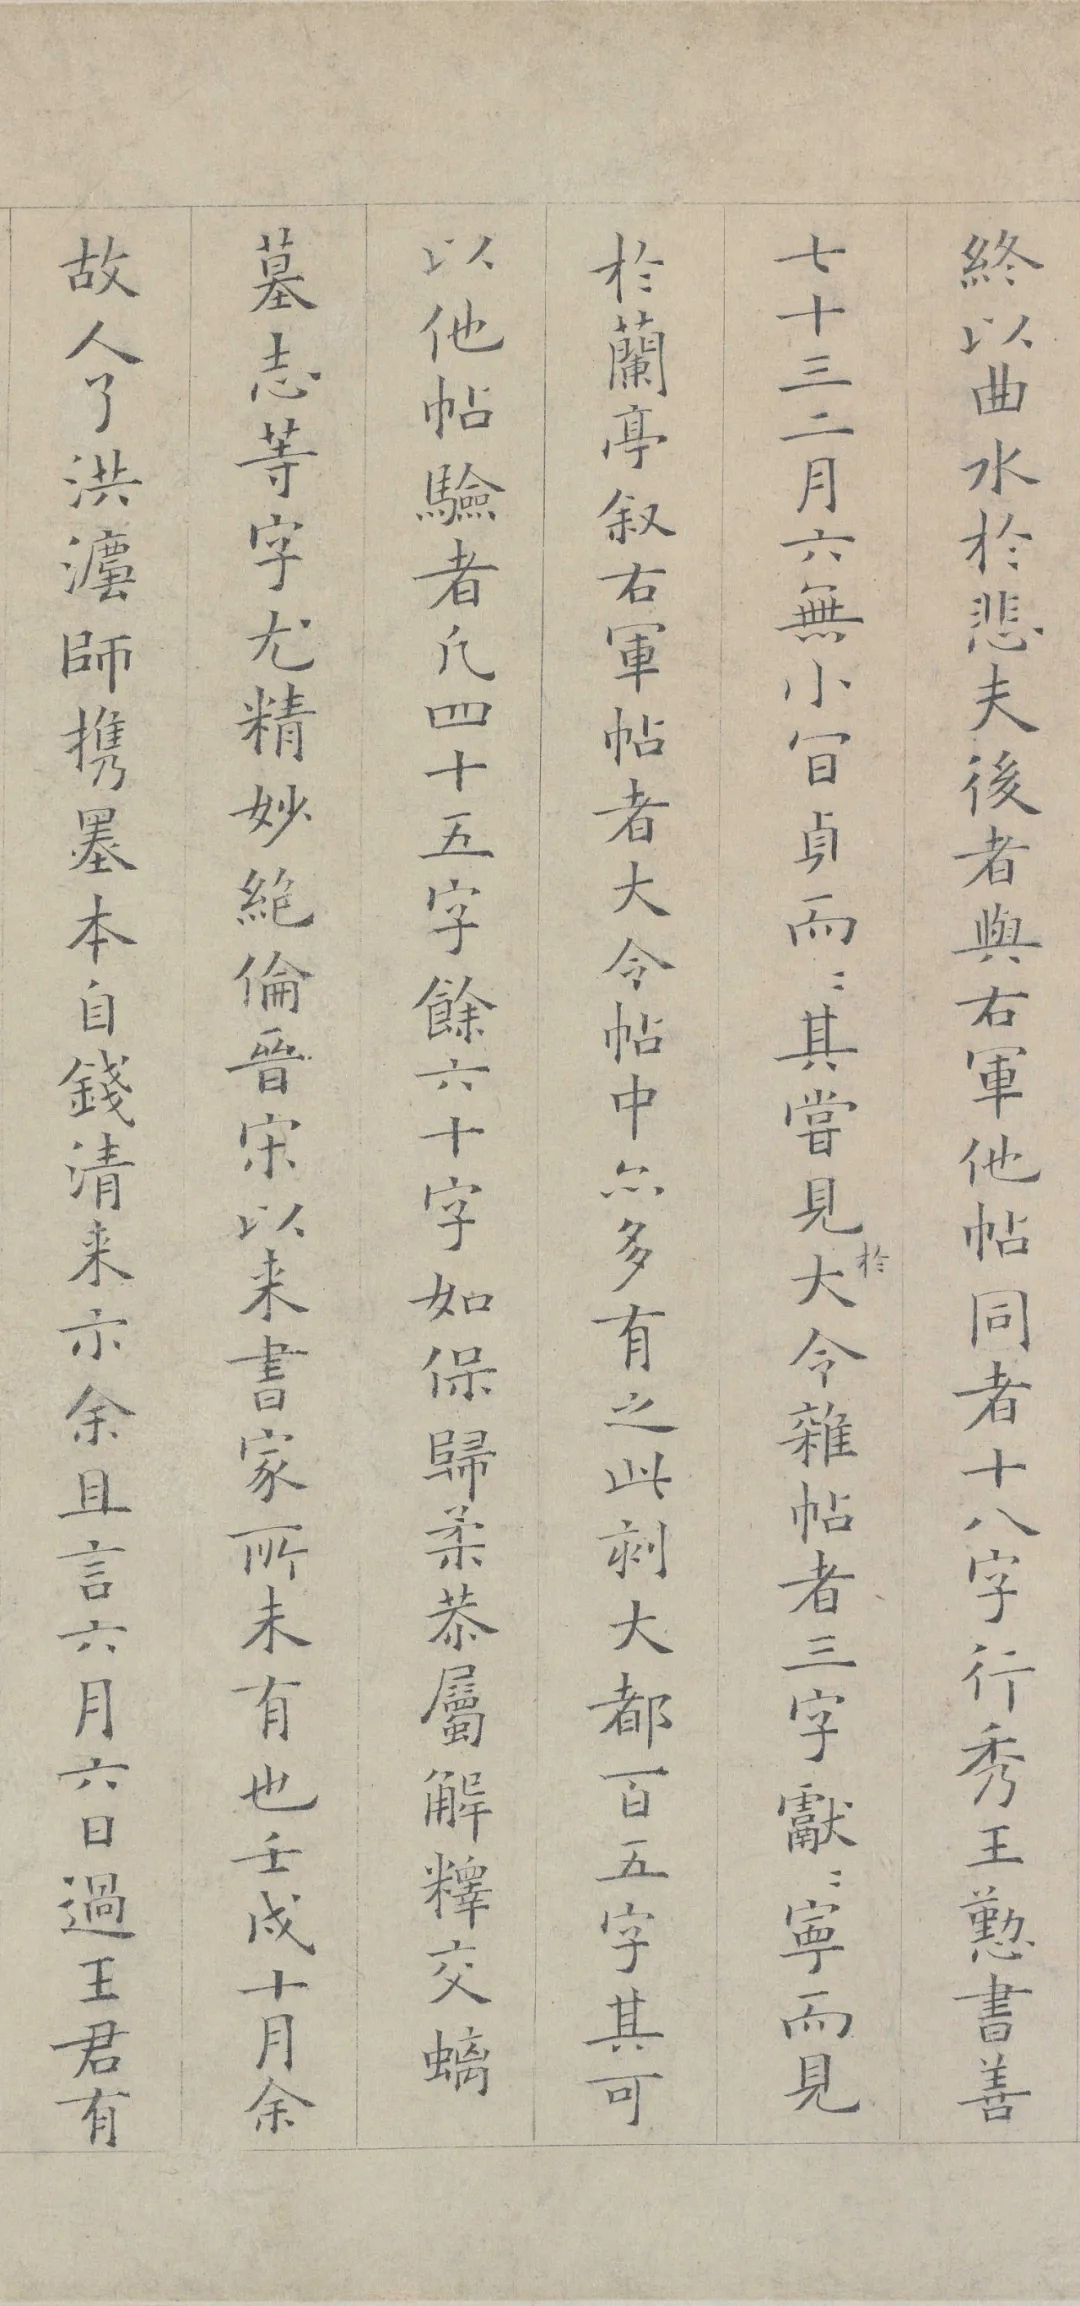 終以曲水於悲夫後者與右軍他帖同者十八字行秀王懃書善
七十三二月六無小冝貞而〻其嘗見於大令雜帖者三字獻〻寧而見
於蘭亭叙右軍帖者大令帖中亦多有之此刻大都百五字其可
以他帖驗者凡四十五字餘六十字如保歸柔恭屬解釋交螭
墓志等字尤精妙絶倫晉宋以来書家所未有也壬戌十月余
故人了洪澐師携墨本自錢清来示余且言六月六日過王君有